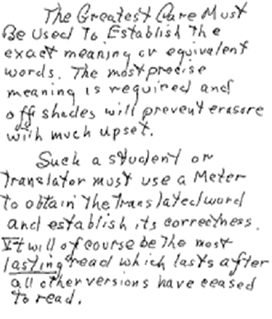 The Greatest Care Must
Be Used to Establish the
exact meaning or equivalent
words. The most precise
meaning is required and
off shades will prevent erasure
with much upset.
Such a student or
translator must use a Meter
to obtain the translated word
and establish its correctness.
It will of course be the most
lasting read which lasts after
all other versions have ceased
to read.